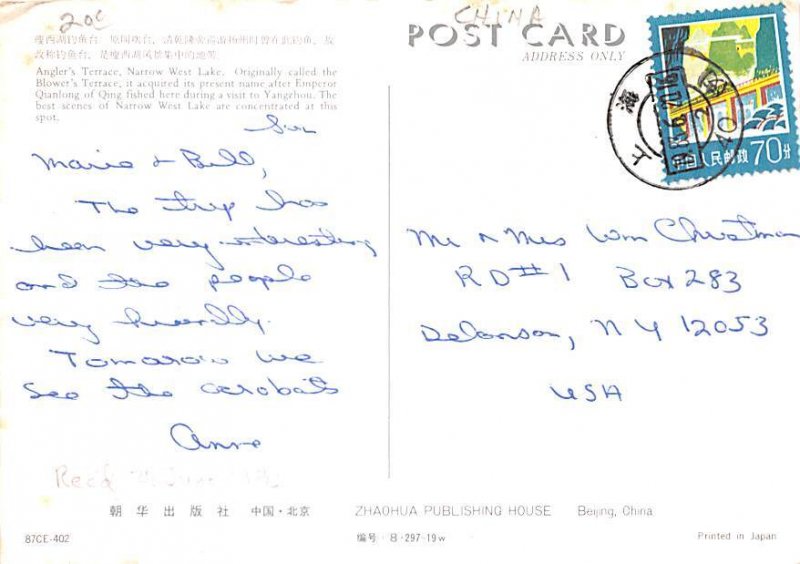 20¢
CHINA
POST CARD
ADDRESS ONLY
瘦西湖钓鱼台:原
故称钓鱼台,是瘦西湖风景集中的地带。
Angler's Terrace, Narrow West Lake. Originally called the
Blower's Terrace, it acquired its present name after Emperor
Qianlong of Qing fished here during a visit to Yangzhou. The
best scenes of Narrow West Lake are concentrated at this
spot.
Marie & Bill,
The trip has
been very interesting
and the people
very friendly.
Tomarow we
see the acrobats
Anne
Recd
上海
中国人民邮政 70分
Mr & Mrs Wm Christman
RD#1 Box 283
Delanson, NY 12053
USA
朝华出版社 中国·北京 ZHAOHUA PUBLISHING HOUSE Beijing, China
87CE-402 编号·8·297-19w Printed in Japan